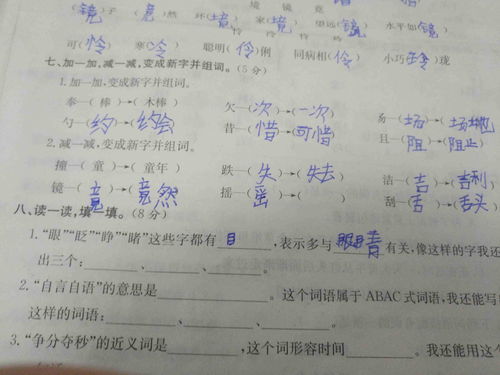 境 竟 镜
(镜)子 (竟)然 环(境) 家(境) 望远(镜) 水平如(镜)
怜 伶 玲
可(怜) 寒(冷) 聪明(伶)俐 同病相(怜) 小巧(玲)珑
七、加一加,减一减,变成新字并组词。(5分)
1.加一加,变成新字并组词。
奉—(棒)→(木棒) 欠—(次)→(一次) 昜—(场)→(场地)
勺—(约)→(约会) 昔—(惜)→(可惜) 且—(阻)→(阻止)
2.减一减,变成新字并组词。
撞—(童)→(童年) 跌—(失)→(失去) 洁—(吉)→(吉利)
镜—(竟)→(竟然) 摇—(䍃)→( ) 刮—(舌)→(舌头)
八、读一读,填一填。(8分)
1.“眼”“眨”“睁”“睹”这些字都有目,表示多与眼睛有关,像这样的字我还
出三个:______、______、______。
2.“自言自语”的意思是______。这个词语属于ABAC式词语,我还能写
这样的词语:______、______、______。
3.“争分夺秒”的近义词是______,这个词形容时间______。我还能用这个